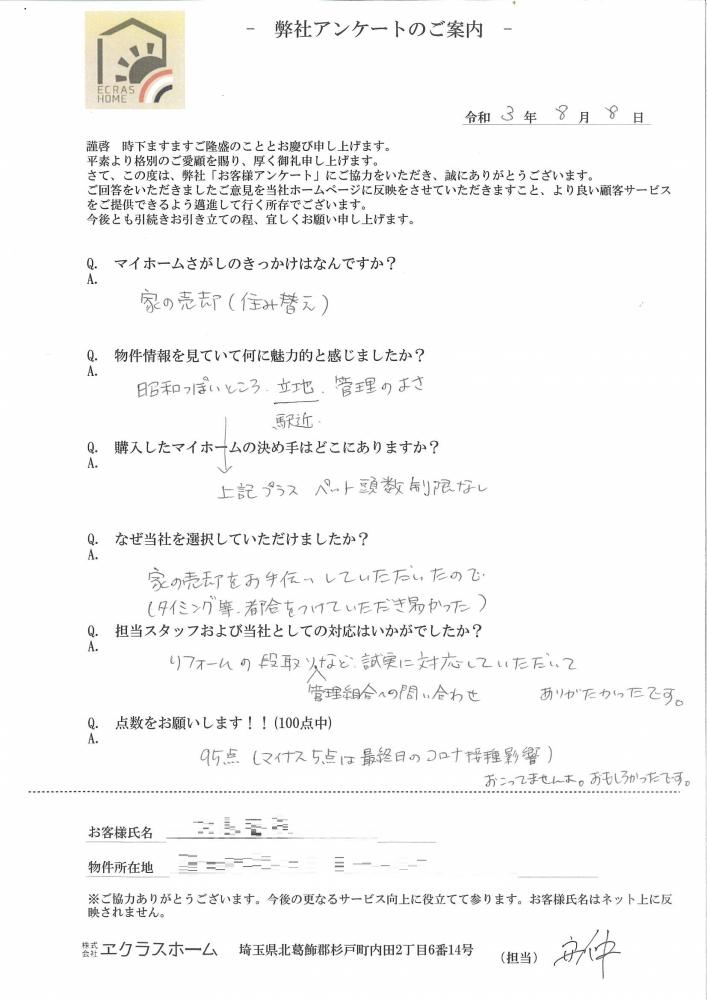 ECRAS
HOME
- 弊社アンケートのご案内 -
令和 3 年 8 月 8 日
謹啓 時下ますますご隆盛のこととお慶び申し上げます。
平素より格別のご愛顧を賜り、厚く御礼申し上げます。
さて、この度は、弊社「お客様アンケート」にご協力をいただき、誠にありがとうございます。
ご回答をいただきましたご意見を当社ホームページに反映をさせていただきますこと、より良い顧客サービス
をご提供できるよう邁進して行く所存でございます。
今後とも引続きお引き立ての程、宜しくお願い申し上げます。
Q. マイホームさがしのきっかけはなんですか?
A.
家の売却(住み替え)
Q. 物件情報を見ていて何に魅力的と感じましたか?
A.
昭和っぽいところ.立地.管理のよさ
駅近.
Q. 購入したマイホームの決め手はどこにありますか?
A.
上記プラス ペット頭数制限なし
Q. なぜ当社を選択していただけましたか?
A.
家の売却をお手伝いしていただいたので
(タイミング等.都合をつけていただき易かった)
Q. 担当スタッフおよび当社としての対応はいかがでしたか?
A.
リフォームの段取りなど.試実に対応していただいて
管理組合への問い合わせ ありがたかったです。
Q. 点数をお願いします!!(100点中)
A.
95点(マイナス5点は最終日のコロナ接種影響)
おこってませんよ。おもしろかったです。
お客様氏名
物件所在地
※ご協力ありがとうございます。今後の更なるサービス向上に役立てて参ります。お客様氏名はネット上に反
映されません。
株式会社 ヱクラスホーム 埼玉県北葛飾郡杉戸町内田2丁目6番14号 (担当)